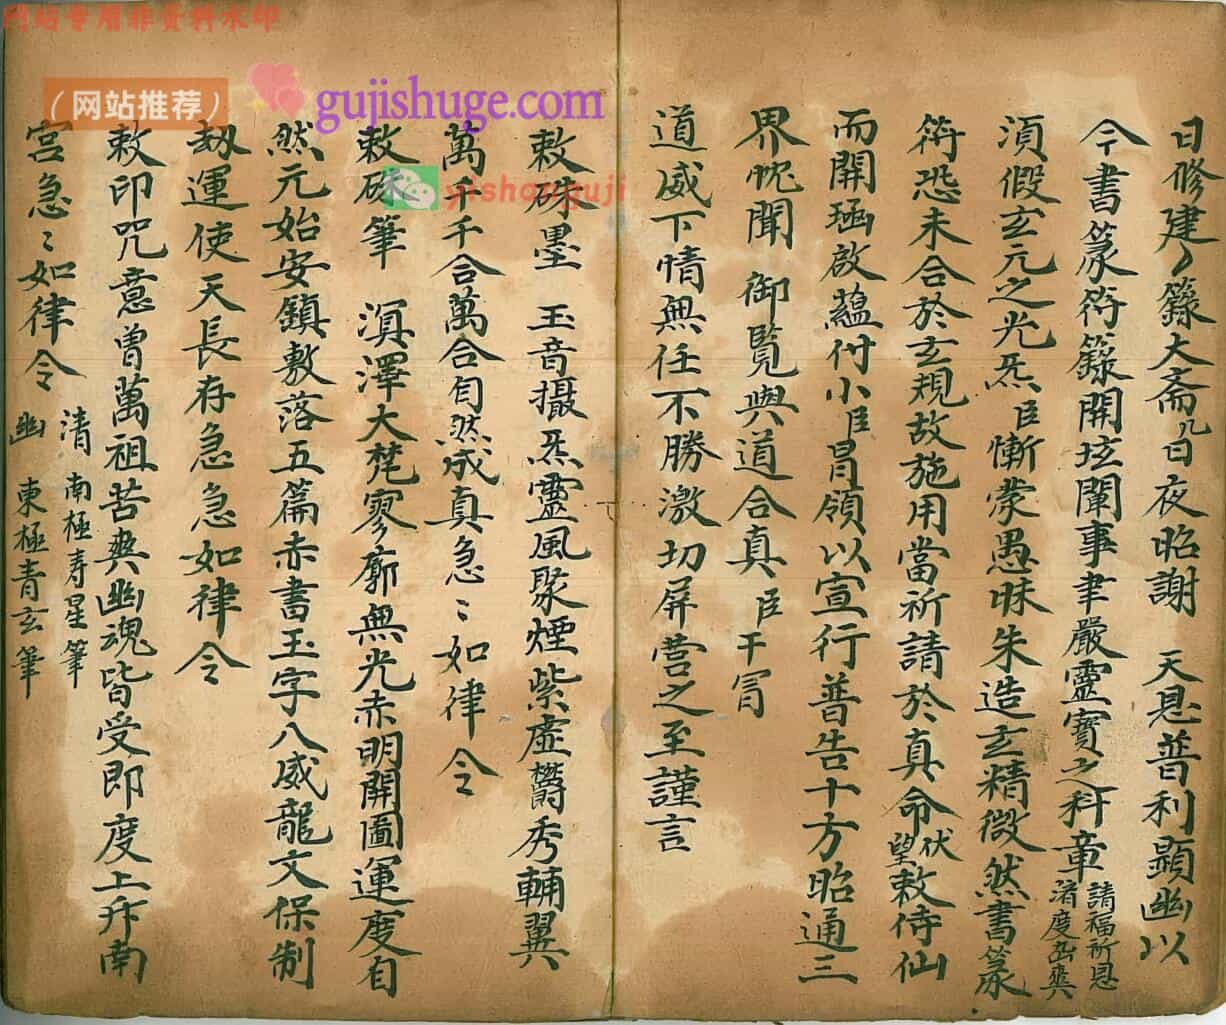 网站专用非资料水印
(网站推荐)
gujishuge.com
yishouguji
日修建〻籙大斋几日夜昭謝 天恩普利顯幽以
今書篆符籙開坛闡事聿嚴靈寶之科章 請福祈恩 渚度幽爽
湏假玄元之光炁臣慚蒙愚昧朱造玄精微然書篆
符恐未合於玄規故施用當祈請於真命伏望敕侍仙
而開琟啟蘊付小臣冐領以宣行普告十方昭通三
界幌聞 御覧與道合真臣干冐
道威下情無任不勝激切屏营之至謹言
敕硃墨 玉音攝炁靈風聚煙紫虛欝秀輔翼
萬千千合萬合自然成真急〻如律令
敕硃筆 溟澤大梵寥廓無光赤明開圖運度自
然元始安鎮敷落五篇赤書玉字八威龍文保制
刼運使天長存急急如律令
敕印咒 億曽萬祖苦爽幽魂皆受即度上升南
宮急〻如律令 清 南極寿星筆 幽 東極青玄筆